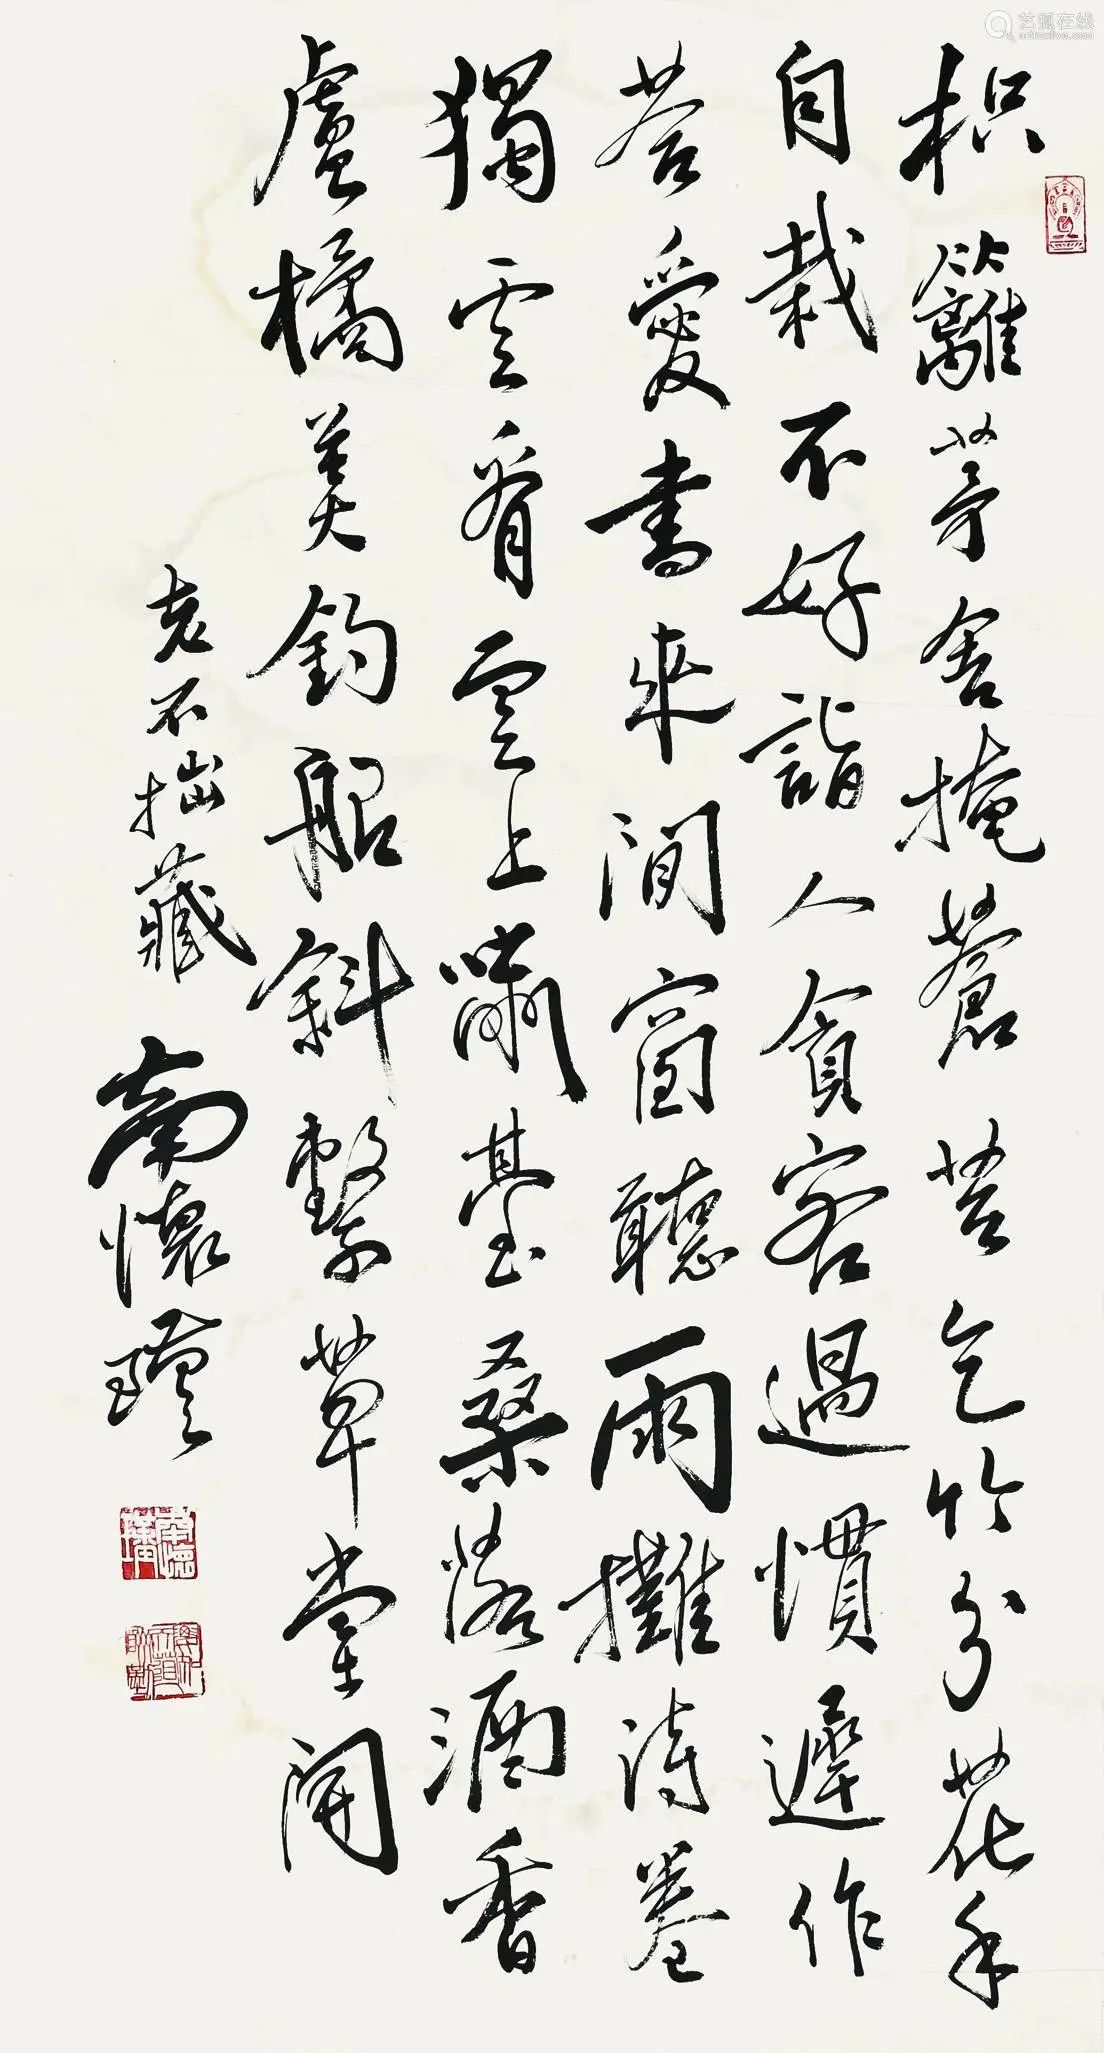 枳籬茅舍掩蒼苔乞竹分花手
自栽不好詣人貪客過慣遲作
荅愛書來閒窗聽雨攤詩卷
獨雲看雲上嘯臺桑落酒香
盧橘美釣船斜繫草堂開
老不拙藏 南懷瑾
南懷瑾
艺狐在线
artfoxlive.com